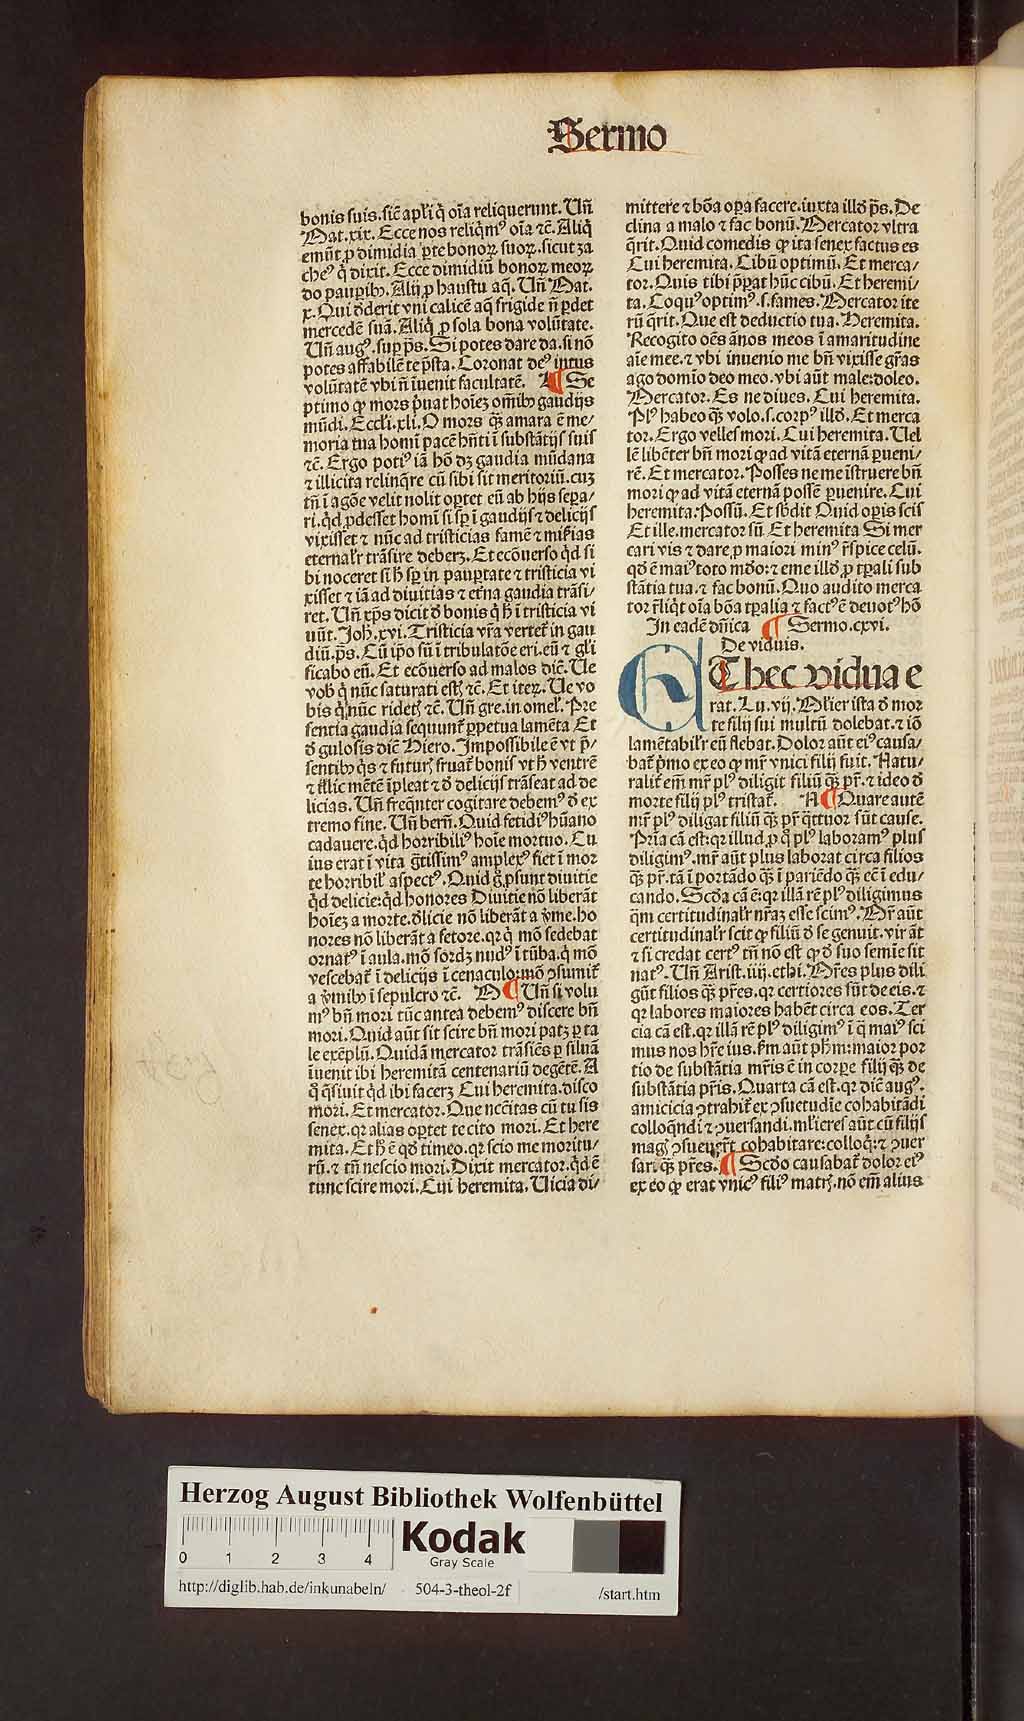 Sermo
bonis suis. sic̄ apl'i q̇ oīa reliquerunt. Un̄
Mat. xix. Ecce nos reliq̇mꝰ oīa ⁊c̄. Aliq̇
emūt ꝓ dimidia ꝑte bonoꝝ suoꝝ. sicut za
cheꝰ q̇ dixit. Ecce dimidiū bonoꝝ meoꝝ
do pauꝑibꝫ. Alij ꝓ haustu aq̄. Un̄ Mat.
x. Qui dederit vni calicē aq̄ frigide n̄ ꝑdet
mercedē suā. Aliq̇ ꝓ sola bona volūtate.
Un̄ augꝰ. sup ps̄. Si potes dare da. si nō
potes affabilē te p̄sta. Coronat deꝰ intus
volūtatē vbi n̄ iuenit facultatē. Se
ptimo ꝙ mors ṗuat hoīeꝫ om̄ibꝫ gaudijs
mūdi. Eccl'i. xli. O mors q̄ꝫ amara ē me/
moria tua homī pacē hn̄ti ī substātijs suis
⁊c̄. Ergo potiꝰ iā hō dꝫ gaudia mūdana
⁊ illicita relinq̄re cū sibi sit meritoriū. cuꝫ
tn̄ ī agōe velit nolit oꝑtet eū ab hijs seꝑa/
ri. qd ꝓdesset homī si sꝑ ī gaudijs ⁊ delicijs
vixisset ⁊ nūc ad tristicias famē ⁊ mīsias
eternal'r trāsire deberꝫ. Et ecōuerso qd si
bi noceret si h̄ sꝑ in pauꝑtate ⁊ tristicia vi
xisset ⁊ iā ad diuitias ⁊ etn̄a gaudia trāsi/
ret. Un̄ xp̄s dicit d̄ bonis q̇ h̄ ī tristicia vi
uūt. Joh̄. xvi. Tristicia vr̄a vertet̄ in gau
diū. ps̄. Cū ip̄o sū ī tribulatōe eri. eū ⁊ gl'i
ficabo eū. Et ecōuerso ad malos dic̄. Ue
vob̄ q̇ nūc saturati estꝭ ⁊c̄. Et iteꝝ. Ue vo
bis q̇ nūc ridetꝭ ⁊c̄. Un̄ gre. in omel'. Pre
sentia gaudia sequunt̄ ꝑpetua lamēta Et
d̄ gulosis dic̄ Hiero. Impossibile ē vt p̄/
sentibꝫ q̇s ⁊ futurꝭ fruat̄ bonis vt h̄ ventrē
⁊ illic mētē īpleat ⁊ d̄ delicijs trāseat ad de
licias. Un̄ freq̄nter cogitare debemꝰ d̄ ex
tremo fine. Un̄ bern̄. Quid fetidiꝰ hūano
cadauere. qd horribiliꝰ hoīe mortuo. Cu
ius erat ī vita g̃tissimꝰ amplexꝰ fiet ī mor
te horribil' aspectꝰ. Quid ḡ ꝓsunt diuitie
qd delicie: qd honores Diuitie nō liberāt
hoīeꝫ a morte. d̄licie nō liberāt a v̄me. ho
nores nō liberāt a fetore. qꝛ q̇ mō sedebat
ornatꝰ ī aula. mō sordꝫ nudꝰ ī tūba. q̇ mō
vescebat̄ ī delicijs ī cenaculo. mō ꝯsumit̄
a v̄mibꝫ ī sepulcro ⁊c̄. Un̄ si volu
mꝰ bn̄ mori tūc antea debemꝰ discere bn̄
mori. Quid aūt sit scire bn̄ mori patꝫ ꝑ ta
le exēplū. Quidā mercator trāsiēs ꝑ siluā
īuenit ibi heremitā centenariū degētē. A
q̊ q̄siuit qd ibi facerꝫ Cui heremita. disco
mori. Et mercator. Que nc̄citas cū tu sis
senex. qꝛ alias oꝑtet te cito mori. Et here
mita. Et h̄ ē qd̄ timeo. qꝛ scio me moritu/
rū. ⁊ tn̄ nescio mori. Dixit mercator. qd ē
tunc scire mori. Cui heremita. Uicia di/
mittere ⁊ bōa oꝑa facere. iuxta illd̄ ps̄. De
clina a malo ⁊ fac bonū. Mercator vltra
q̄rit. Quid comedis ꝙ ita senex factus es
Cui heremita. Cibū optimū. Et merca/
tor. Quis tibi p̄ꝑat hūc cibū. Et heremi/
ta. Coquꝰ optimꝰ. s. fames. Mercator ite
rū q̄rit. Que est deductio tua. Heremita.
Recogito oēs ānos meos ī amaritudine
aīe mee. ⁊ vbi inuenio me bn̄ vixisse gr̄as
ago domīo deo meo. vbi aūt male: doleo.
Mercator. Es ne diues. Cui heremita.
Plꝰ habeo q̄ꝫ volo. s. corpꝰ illd̄. Et merca
tor. Ergo velles mori. Cui heremita. Uel
lē libēter bn̄ mori ꝙ ad vitā eternā ꝑueni/
rē. Et mercator. Posses ne me īstruere bn̄
mori ꝙ ad vitā eternā possē ꝑuenire. Cui
heremita. Possū. Et sꝰdit Quid oꝑis scis
Et ille. mercator sū. Et heremita Si mer
cari vis ⁊ dare ꝓ maiori minꝰ r̄spice celū.
qd̄ ē maiꝰ toto mūdo: ⁊ eme illd̄ ꝓ tꝑali sub
stātia tua. ⁊ fac bonū. Quo audito merca
tor r̄liq̇t oīa bōa tꝑalia ⁊ factꝰ ē deuotꝰ hō
In eadē dn̄ica Sermo. cxvi.
De viduis.
Et hec vidua e
rat. Lu. vij. Ml'ier ista d̄ mor
te filij sui multū dolebat. ⁊ iō
lamētabil'r eū flebat. Dolor aūt eiꝰ causa/
bat̄ ṗmo ex eo ꝙ mr̄ vnici filij fuit. Natu/
ralit̄ em̄ mr̄ plꝰ diligit filiū q̄ꝫ pr̄. ⁊ ideo d̄
morte filij plꝰ tristat̄. Quare autē
mr̄ plꝰ diligat filiū q̄ꝫ pr̄ q̄ttuor sūt cause.
Pria cā est: qꝛ illud ꝓ q̊ plꝰ laboramꝰ plus
diligimꝰ. mr̄ aūt plus laborat circa filios
q̄ꝫ pr̄. tā ī portādo q̄ꝫ ī pariēdo q̄ꝫ ec̄ ī edu/
cando. Scd̄a cā ē: qꝛ illā rē plꝰ diligimus
quā certitudinal'r nr̄aꝫ esse scimꝰ. Mr̄ aūt
certitudinal'r scit ꝙ filiū d̄ se genuit. vir āt
⁊ si credat certꝰ tn̄ nō est ꝙ d̄ suo semīe sit
natꝰ. Un̄ Arist. iiij. ethi. Mr̄es plus dili
gūt filios q̄ꝫ pr̄es. qꝛ certiores sūt de eis. ⁊
qꝛ labores maiores habēt circa eos. Ter
cia cā est. qꝛ illā rē plꝰ diligimꝰ ī q̄ maiꝰ sci
mus nos hr̄e ius. Km̄ aūt ph̄m: maior por
tio de substātia mr̄is ē in corꝑe filij q̄ꝫ de
substātia pr̄is. Quarta cā est. qꝛ dic̄ augꝰ.
amicicia ꝯtrahit̄ ex ꝯsuetudīe cohabitādi
colloq̄ndi ⁊ ꝯuersandi. ml'ieres aūt cū filijs
magꝭ ꝯsueuer̄t cohabitare: colloq̇: ⁊ ꝯuer
sari. q̄ꝫ pr̄es. Scd̄o causabat̄ dolor eiꝰ
ex eo ꝙ erat vnicꝰ filiꝰ matrꝭ. nō em̄ alius
Herzog August Bibliothek Wolfenbüttel
0 1 2 3 4
Kodak
Gray Scale
http://diglib.hab.de/inkunabeln/ 504-3-theol-2f /start.htm